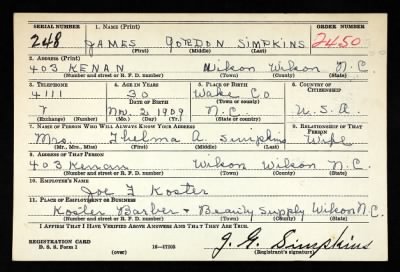 SERIAL NUMBER 1. NAME (Print) ORDER NUMBER
248 JAMES GORDON SIMPKINS 2450
(First) (Middle) (Last)
2. ADDRESS (Print)
403 KENAN Wilson Wilson N.C.
(Number and street or R. F. D. number) (Town) (County) (State)
3. TELEPHONE 4. AGE IN YEARS 5. PLACE OF BIRTH 6. COUNTRY OF CITIZENSHIP
4111 30 Wake Co
DATE OF BIRTH (Town or county)
Nov. 2 1909 N.C. U.S.A.
(Exchange) (Mo.) (Day) (Yr.) (State or country)
7. NAME OF PERSON WHO WILL ALWAYS KNOW YOUR ADDRESS 8. RELATIONSHIP OF THAT PERSON
Mrs. Thelma A Simpkins Wife
(Mr., Mrs., Miss) (First) (Middle) (Last)
9. ADDRESS OF THAT PERSON
403 Kenan Wilson Wilson N.C.
(Number and street or R. F. D. number) (Town) (County) (State)
10. EMPLOYER'S NAME
Joe F Koster
11. PLACE OF EMPLOYMENT OR BUSINESS
Koster Barber + Beauty Supply Wilson N.C.
(Number and street or R. F. D. number) (Town) (County) (State)
I AFFIRM THAT I HAVE VERIFIED ABOVE ANSWERS AND THAT THEY ARE TRUE.
REGISTRATION CARD J. G. Simpkins
D. S. S. Form 1 (over) 16—17105 (Registrant's signature)